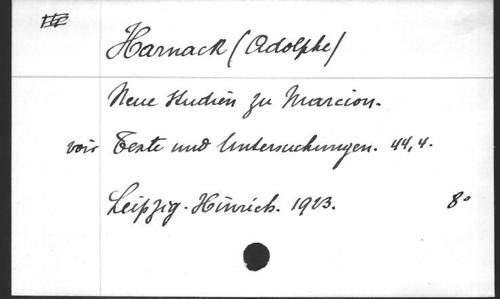 Harnack (Adolphe)
Neue Studien zu Marcion.
voir Texte und Untersuchungen. 44, 4.
Leipzig - Hinrich. 1923. 8°